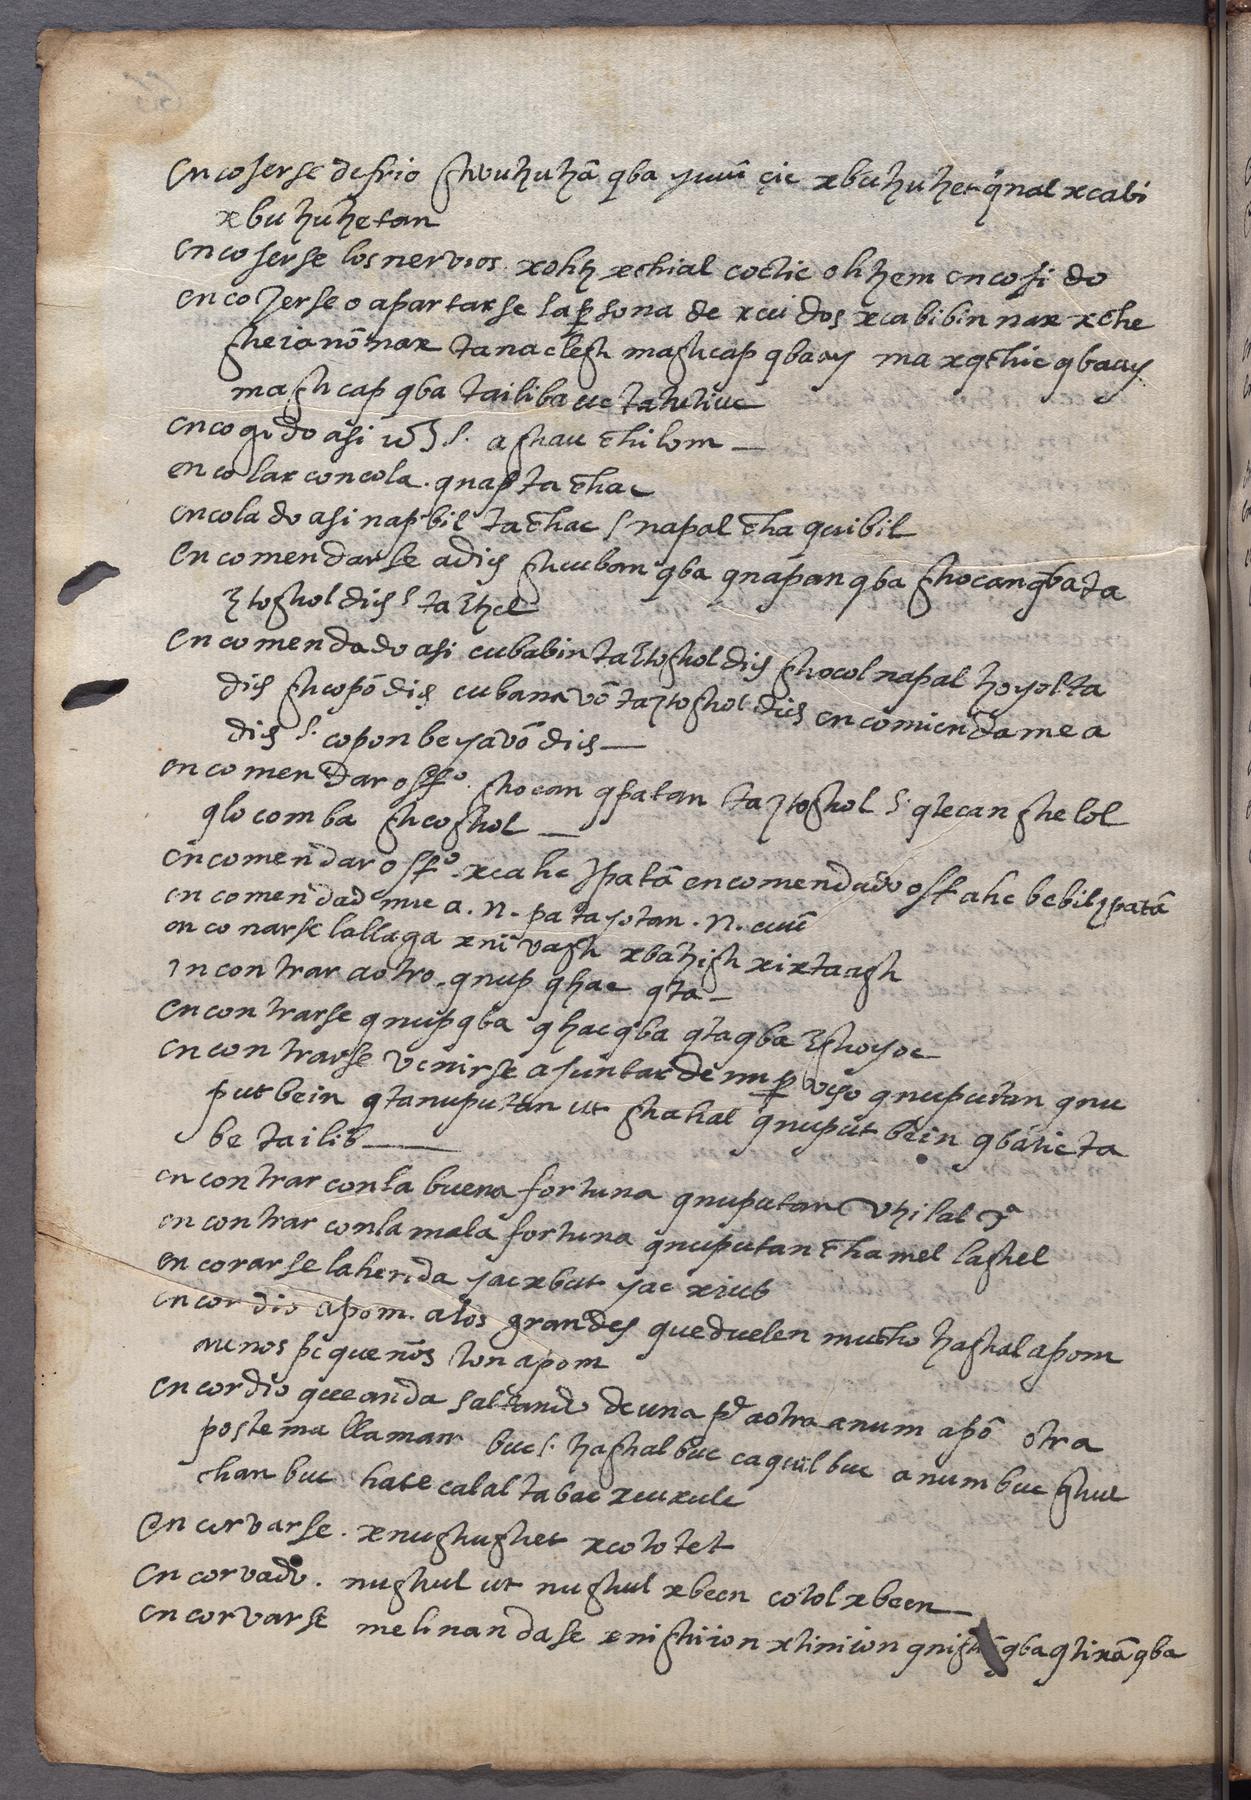 encoserse defrio ghvuhuhā qba yuuī çic xbuhuhet qnal xcabi
xbuhuhetan
encoserse losnervios. xohh xchial coctic ohhem encosido
encojerse o apartarse la persona de rui dos xcabibin nax xche
gheianōnax tanaclegh maghcap qbaay ma xqchic qbaay
maghcap qba tailibauc tatutiuc
encogido asi s. aghau chilom
encolar concola. qnap ta chac
encolado asi napbil tachac s napal cha quibil
encomendarse adis ghcuban qba qnapan qba ghocanqbata
ztoghol dis s ta
encomendado asi cubabin taztoghol dis ghocol napal hoyolta
dis ghcopō dis cubana vō taztoghol dis encomiendame a
dis s. coponbeyavō dis
encomendar offo. ghocan qpatan taztoghol s. qtecan ghelol
qlocomba ghcoghol
encomendar offo. xcahc spatā encomendado off ahc bebil zpatā
encomendad me a. n. pa tayotan. n. cuuī
enconarse lallaga xni vagh xbahigh xixtaagh
encontrar aotro. qnup qhac qta
encontrarse qnupqba qhacqba qtaqba zghoyoc
encontrarse venirse ajuntar de improviso qnuputan qnu
put bein qtanuputan ut ghahal qnuput bein qbatic ta
be tailib
encontrar conla buena fortuna qnuputan vhilal
encontrar conla mala fortuna qnuputan chamel laghel
encorarse laherida yacxbut yac xiub
encordio apom. alos grandes queduelen mucho haghal apom
menos pequeños ton apom
encordio queanda saltando de una pe aotra anum apō otra
postema llaman buc s. haghal buc caquil buc anum buc ghuc
chan buc hate calal tabac xcuxulc
encorvarse. xnughughet xcototet
encorvado. nughul ut nughul xbeen cotol xbeen
encorvarse melinandase xnighiion xtinion qtixā qba